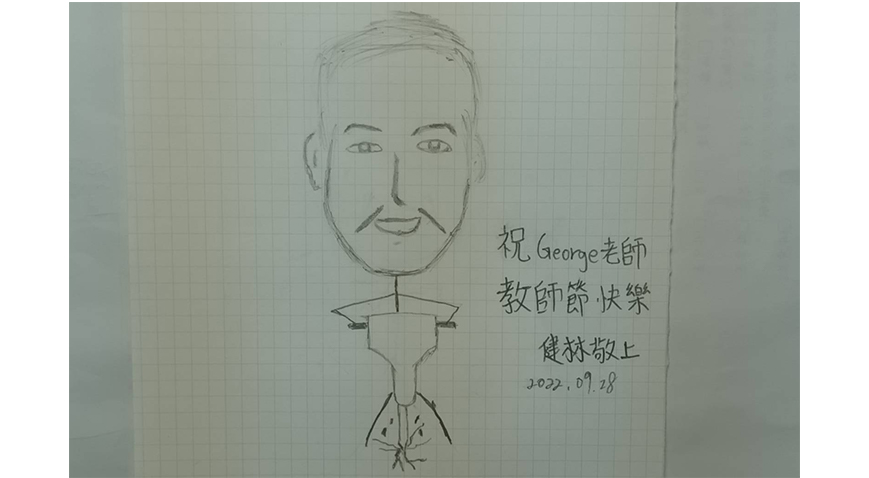 祝 George老師
教師節快樂
健林敬上
2022.09.28